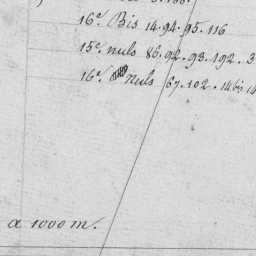 16e Bis 14. 94. 95. 116
15e. nuls 86. 92. 93. 192. 3
16e. nuls 67. 102. 14 bis 14
a 1000 m.